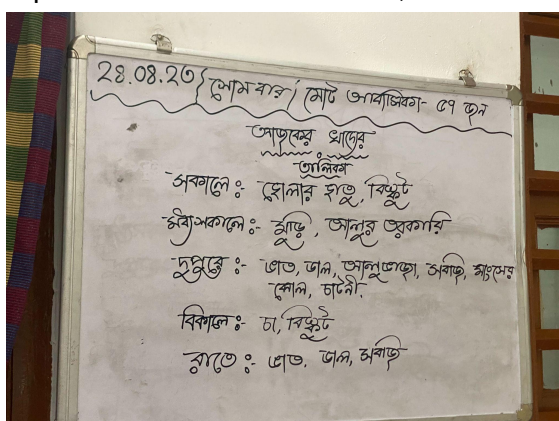 28.08.23 / সোমবার / মোট আবাসিকা- ৫৭ জন
আজকের খাদ্যের
তালিকা
সকালে:- ছোলার ছাতু, বিস্কুট
মধ্যসকালে:- মুড়ি, আলুর তরকারি
দুপুরে:- ভাত, ডাল, আলুভাজা, সবজি, মাংসের
ঝোল, চাটনী.
বিকালে:- চা, বিস্কুট
রাতে:- ভাত, ডাল, সবজি